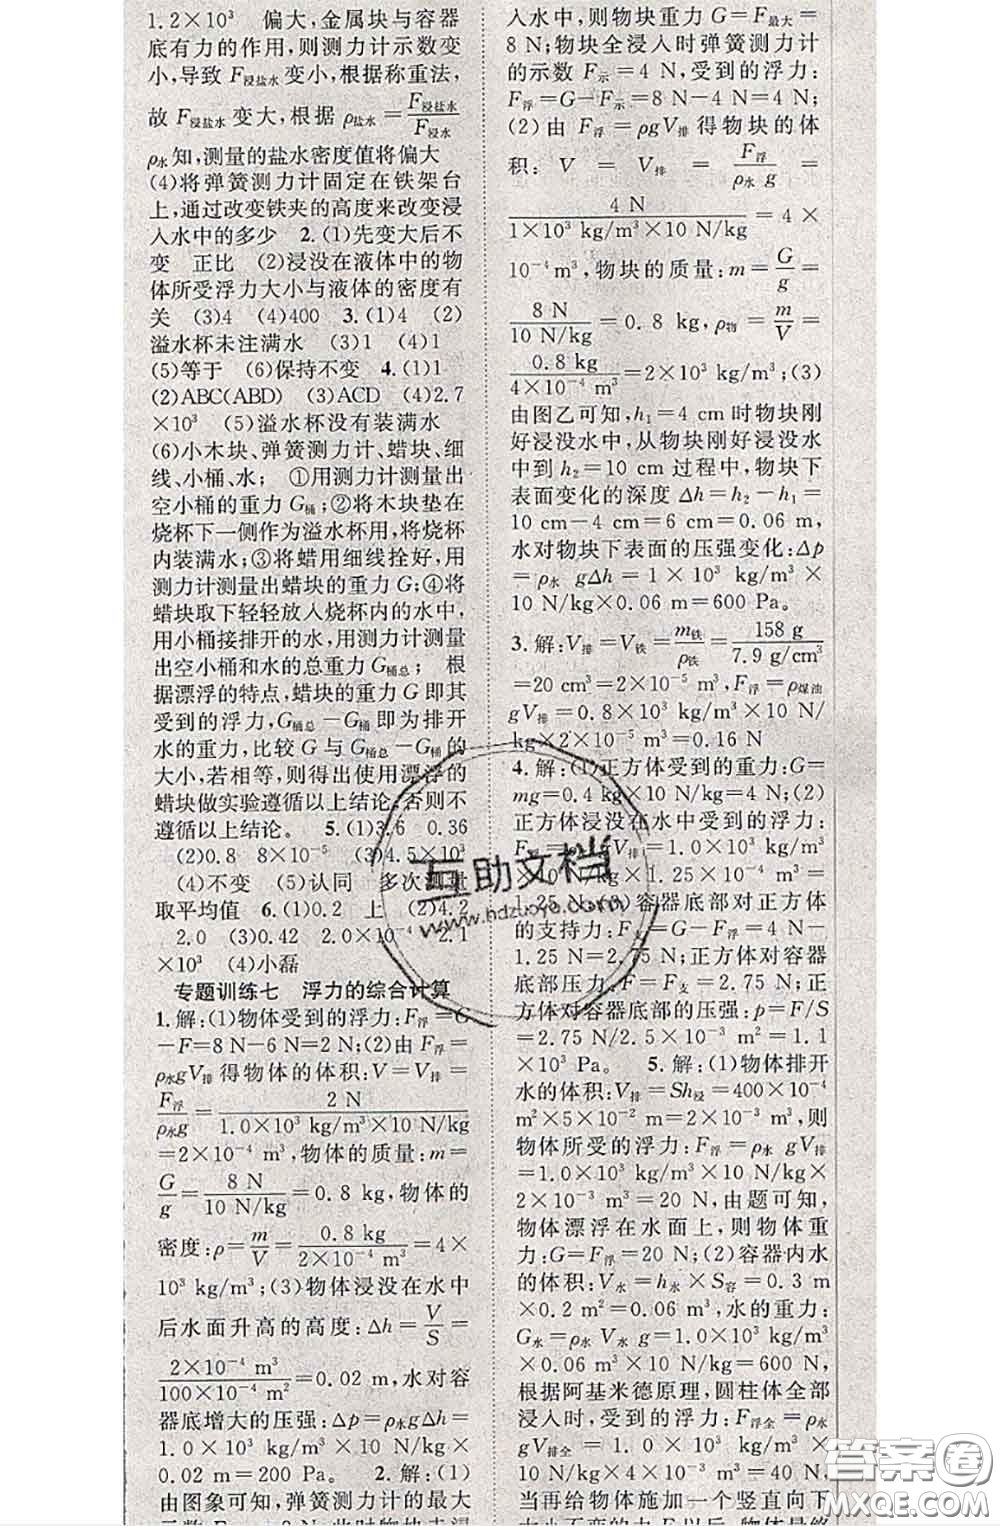 1.2×10³ 偏大,金属块与容器
底有力的作用,则测力计示数变
小,导致 F浸盐水变小,根据称重法,
故 F浸盐水变大,根据 ρ盐水=F浸盐水/F浸水
ρ水知,测量的盐水密度值将偏大
(4)将弹簧测力计固定在铁架台
上,通过改变铁夹的高度来改变浸
入水中的多少 2.(1)先变大后不
变 正比 (2)浸没在液体中的物
体所受浮力大小与液体的密度有
关 (3)4 (4)400 3.(1)4 (2)
溢水杯未注满水 (3)1 (4)1
(5)等于 (6)保持不变 4.(1)1
(2)ABC(ABD) (3)ACD (4)2.7
×10³ (5)溢水杯没有装满水
(6)小木块、弹簧测力计、蜡块、细
线、小桶、水; ①用测力计测量出
空小桶的重力 G桶;②将木块垫在
烧杯下一侧作为溢水杯用,将烧杯
内装满水;③将蜡用细线拴好,用
测力计测量出蜡块的重力 G;④将
蜡块取下轻轻放入烧杯内的水中,
用小桶接排开的水,用测力计测量
出空小桶和水的总重力 G桶总; 根
据漂浮的特点,蜡块的重力 G 即其
受到的浮力,G桶总-G桶即为排开
水的重力,比较 G 与 G桶总-G桶的
大小,若相等,则得出使用漂浮的
蜡块做实验遵循以上结论;否则不
遵循以上结论。 5.(1)3.6 0.36
(2)0.8 8×10⁻⁵ (3)4.5×10³
(4)不变 (5)认同 多次测量
取平均值 6.(1)0.2 上 (2)4.2
2.0 (3)0.42 2.0×10⁻⁴ 2.1
×10³ (4)小磊
专题训练七 浮力的综合计算
1.解:(1)物体受到的浮力:F浮=G
-F=8 N-6 N=2 N;(2)由 F浮=
ρ水gV排得物体的体积:V=V排=
F浮/ρ水g=2 N/1.0×10³ kg/m³×10 N/kg
=2×10⁻⁴ m³,物体的质量:m=
G/g=8 N/10 N/kg=0.8 kg,物体的
密度:ρ=m/V=0.8 kg/2×10⁻⁴ m³=4×
10³ kg/m³;(3)物体浸没在水中
后水面升高的高度:Δh=V/S=
2×10⁻⁴ m³/100×10⁻⁴ m²=0.02 m,水对容
器底增大的压强:Δp=ρ水gΔh=
1.0×10³ kg/m³×10 N/kg×
0.02 m=200 Pa。 2.解:(1)
由图象可知,弹簧测力计的最大
入水中,则物块重力 G=F最大=
8 N;物块全浸入时弹簧测力计
的示数 F示=4 N,受到的浮力:
F浮=G-F示=8 N-4 N=4 N;
(2)由 F浮=ρgV排得物块的体
积: V = V排 = F浮/ρ水 g =
4 N/1×10³ kg/m³×10 N/kg=4×
10⁻⁴m³,物块的质量:m=G/g=
8 N/10 N/kg=0.8 kg,ρ物=m/V=
0.8 kg/4×10⁻⁴ m³=2×10³ kg/m³;(3)
由图乙可知,h₁=4 cm 时物块刚
好浸没水中,从物块刚好浸没水
中到 h₂=10 cm 过程中,物块下
表面变化的深度 Δh=h₂-h₁=
10 cm-4 cm=6 cm=0.06 m,
水对物块下表面的压强变化:Δp
=ρ水 gΔh=1×10³ kg/m³×
10 N/kg×0.06 m=600 Pa。
3.解:V排=V铁=m铁/ρ铁=158 g/7.9 g/cm³
=20 cm³=2×10⁻⁵ m³,F浮=ρ煤油
gV排=0.8×10³ kg/m³×10 N/
kg×2×10⁻⁵ m³=0.16 N
4.解:(1)正方体受到的重力:G=
mg=0.4 kg×10 N/kg=4 N;(2)
正方体浸没在水中受到的浮力:
F浮=ρ水gV排=1.0×10³ kg/m³
×10 N/kg×1.25×10⁻⁴ m³=
1.25 N;(3)容器底部对正方体
的支持力:F支=G-F浮=4 N-
1.25 N=2.75 N;正方体对容器
底部压力:F=F支=2.75 N;正
方体对容器底部的压强:p=F/S
=2.75 N/2.5×10⁻³ m²=1.1
×10³ Pa。 5.解:(1)物体排开
水的体积:V排=Sh浸=400×10⁻⁴
m²×5×10⁻² m=2×10⁻³ m³,则
物体所受的浮力:F浮=ρ水 gV排
=1.0×10³ kg/m³×10 N/kg×
2×10⁻³ m³=20 N,由题可知,
物体漂浮在水面上,则物体重
力:G=F浮=20 N;(2)容器内水
的体积:V水=h水×S容=0.3 m
×0.2 m²=0.06 m³,水的重力:
G水=ρ水 V水 g=1.0×10³ kg/m³
×0.06 m³×10 N/kg=600 N,
根据阿基米德原理,圆柱体全部
浸入时,受到的浮力:F浮全=ρ水
gV排全=1.0×10³ kg/m³×
10 N/kg×4×10⁻³ m³=40 N,
当再给物体施加一个竖直向下
互助文档
www.hdzuoye.com
答案圈
MXQE.COM